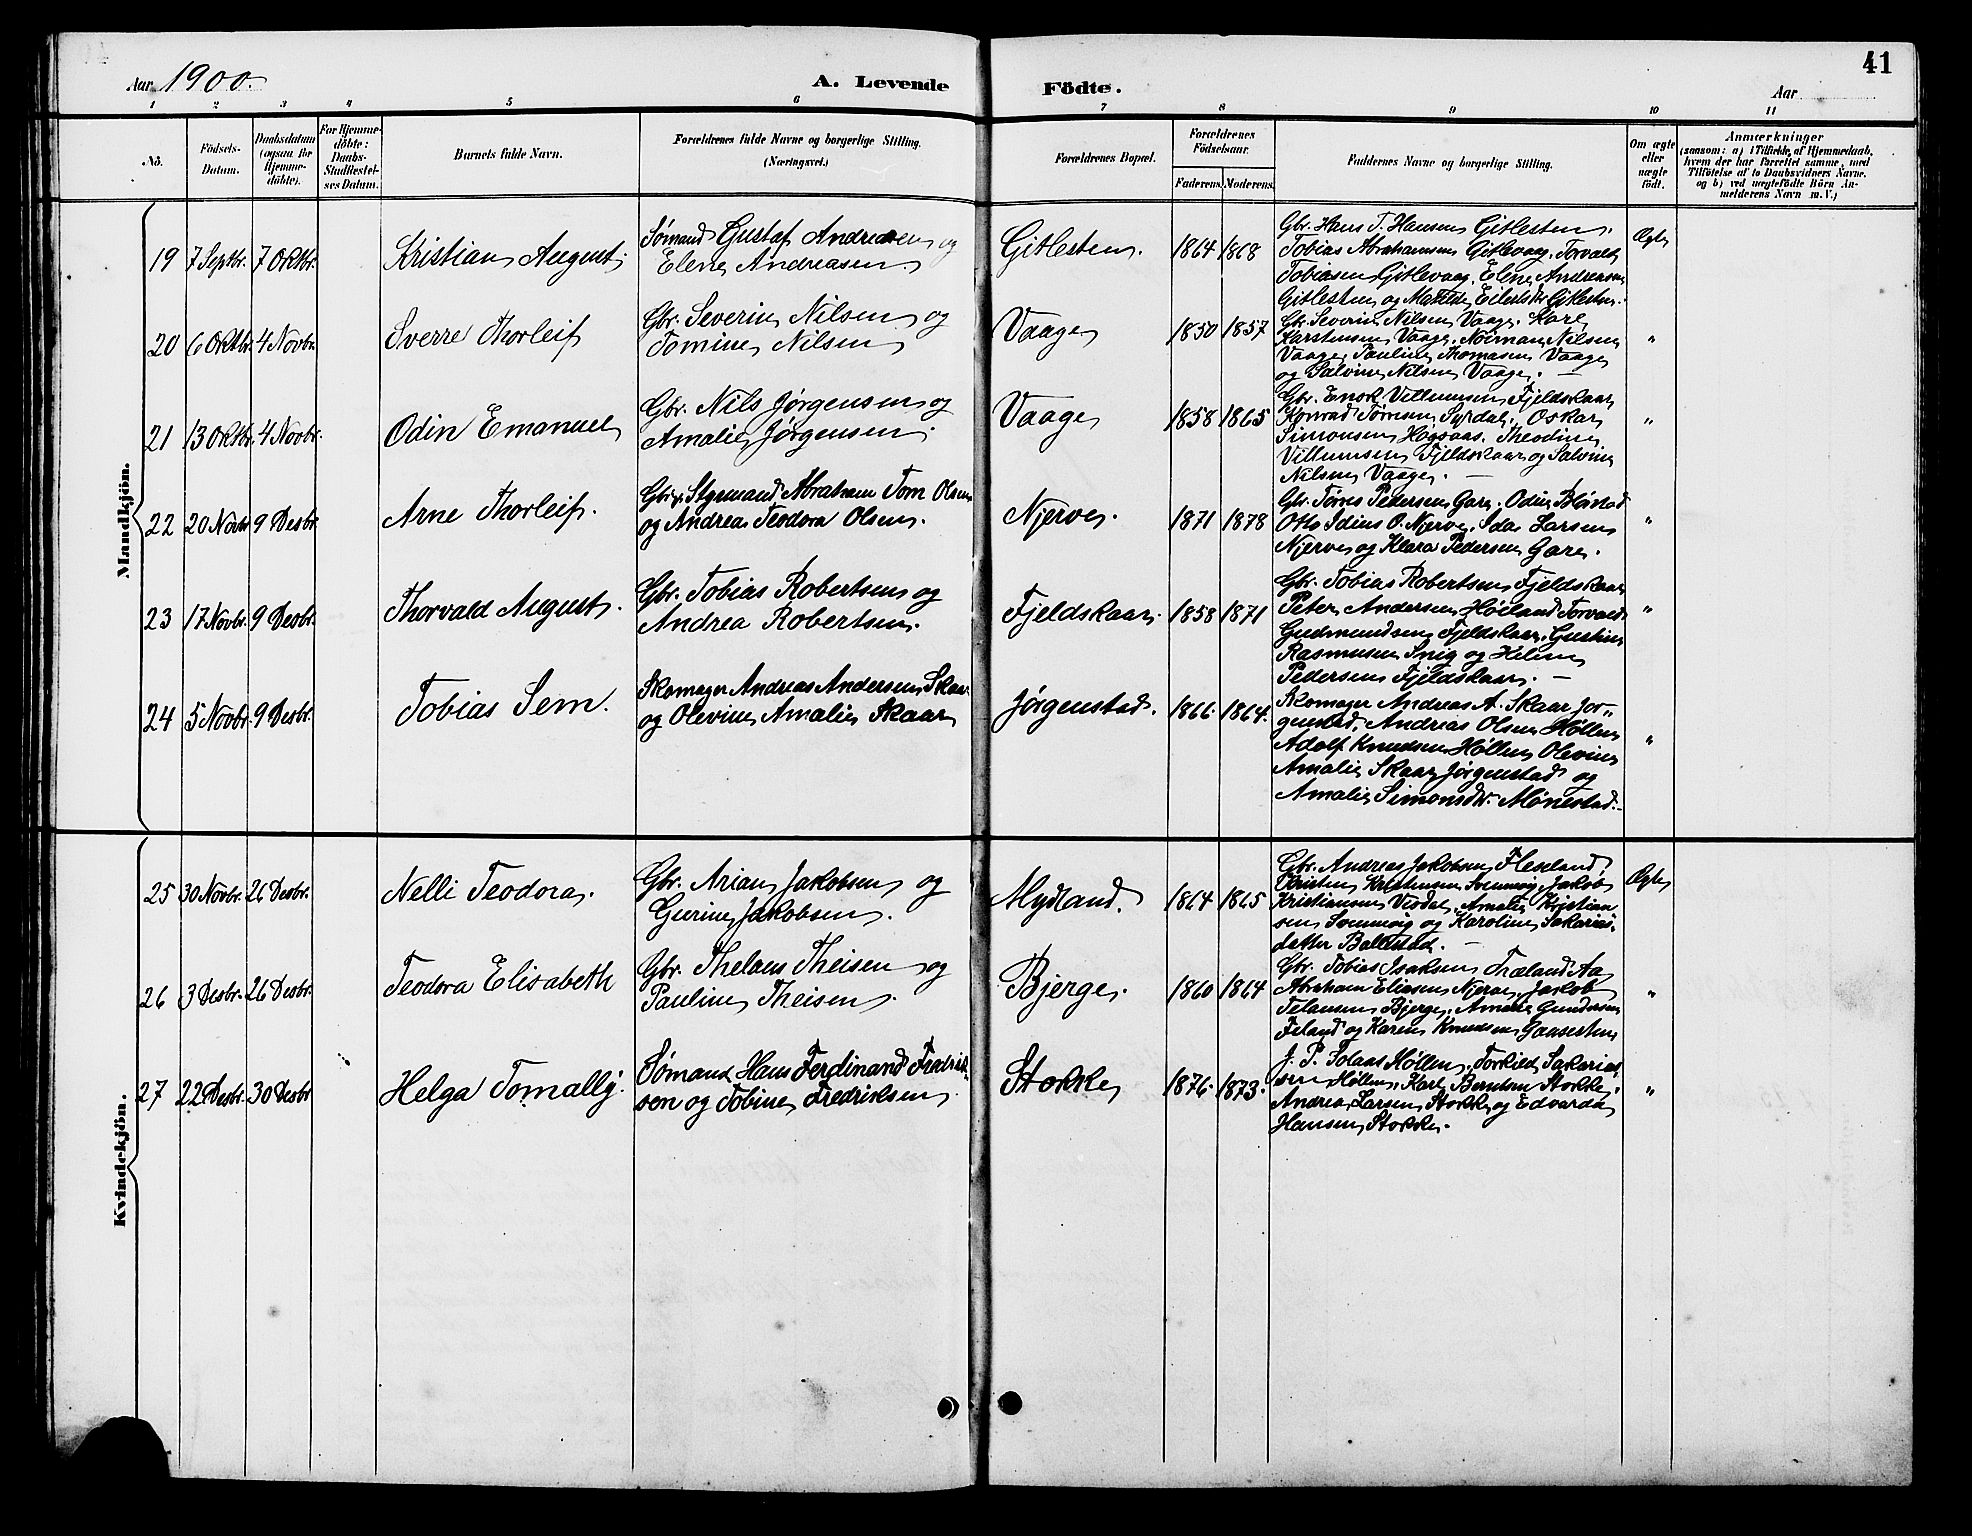 41
Aar 1900.
A. Levende Födte.
Aar
1 2 3 4 5 6 7 8 9 10 11
No.
Födsels-
Datum.
Daabsdatum
(ogsaa for
Hjemme-
döbte).
For Hjemme-
döbte:
Daabs-
Stadfæstel-
ses Datum.
Barnets fulde Navn.
Forældrenes fulde Navne og borgerlige Stilling.
(Næringsvei.)
Forældrenes Bopæl.
Forældrenes
Födselsaar.
Faderens. Moderens.
Faddernes Navne og borgerlige Stilling.
Om ægte
eller
uægte
født.
Anmærkninger
(saasom: a) i Tilfælde af Hjemmedaab,
hvem der har forrettet samme, med
Tilföielse af to Daabsvidners Navne,
og b) ved uægtefödte Börn An-
melderens Navn m. V.)
Mandkjön.
19 7 Septbr. 7 Oktbr. Kristian August.
Sømand Gustaf Andreasen og
Elene Andreasen.
Gitlesten. 1864 1868
Gbr. Hans T. Hansen Gitlesten.
Tobias Abrahamsen Gitlevaag, Torvald
Tobiasen Gitlevaag, Elene Andreasen
Gitlesten og Matilde Eilertsdtr Gitlesten.
Ægte
20 6 Oktbr. 4 Novbr. Sverre Thorleif
Gbr. Severin Nilsen og
Tomine Nilsen
Vaage 1850 1857
Gbr. Severin Nilsen Vaage, Karl
Karstensen Vaage, Noiman Nilsen
Vaage, Pauline Thomasen Vaage
og Salvine Nilsen Vaage. —
"
21 13 Oktbr. 4 Novbr. Odin Emanuel
Gbr. Nils Jørgensen og
Amalie Jørgensen.
Vaage 1858 1865
Gbr. Enok Villumsen Fjeldskaar
Konrad Tørresen Syrdal, Oskar
Simonsen Høgsaas, Theodine
Villumsen Fjeldskaar og Salvine
Nilsen Vaage. —
"
22 20 Novbr. 9 Desbr. Arne Thorleif.
Gbr. Styrmand Abraham Tom Olsen
og Andrea Teodora Olsen.
Njerve. 1871 1878
Gbr. Tørres Pedersen Gare, Odin
Otto Idius O. Njerve, Ida Larsen
Njerve og Klara Pedersen Gare.
"
23 17 Novbr. 9 Desbr. Thorvald August.
Gbr. Tobias Robertsen og
Andrea Robertsen.
Fjeldskaar. 1858 1871
Gbr. Tobias Robertsen Fjeldskaar
Peter Andersen Høiland Torvald
Gudmundsen Fjeldskaar, Gustine
Rasmussen Snig og Heline
Pedersen Fjeldskaar. —
"
24 5 Novbr. 9 Desbr. Tobias Sem.
Skomager Andreas Andersen Skaar
og Olevine Amalie Skaar
Jørgenstad. 1866. 1864.
Skomager Andreas A. Skaar Jør-
genstad, Andreas Olsen Høllen
Adolf Knudsen Høllen Olevine
Amalie Skaar Jørgenstad og
Amalie Simonsdtr. Mønestad. —
"
Kvindekjön.
25 30 Novbr. 26 Desbr. Nelli Teodora.
Gbr. Arian Jakobsen og
Gurine Jakobsen.
Mydland. 1864 1865
Gbr. Andreas Jakobsen Fleseland,
Kristen Kristensen Svennvig, Jakob
Kristiansen Visdal, Amalie Kristian
sen Svennvig og Karoline Sakarias-
datter Ballestad. —
Ægte
26 3 Desbr. 26 Desbr. Teodora Elisabeth
Gbr. Thelaus Theisen og
Pauline Theisen.
Bjerge. 1860 1864
Gbr. Tobias Isaksen Træland Aa
Abraham Eliasen Njerve, Jakob
Telausen Bjerge, Amalie Gundersen
Feland og Karen Knudsen Gaaserten
"
27 22 Desbr. 30 Desbr Helga Tomally.
Sømand Hans Ferdinand Fredrik-
sen og Tobine Fredriksen.
Stokke 1876. 1873.
J. P. Solaas Høllen, Torkild Sakarias
sen Høllen, Karl Berntsen Stokke,
Andrea Larsen Stokke og Edvarda
Hansen Stokke.
"